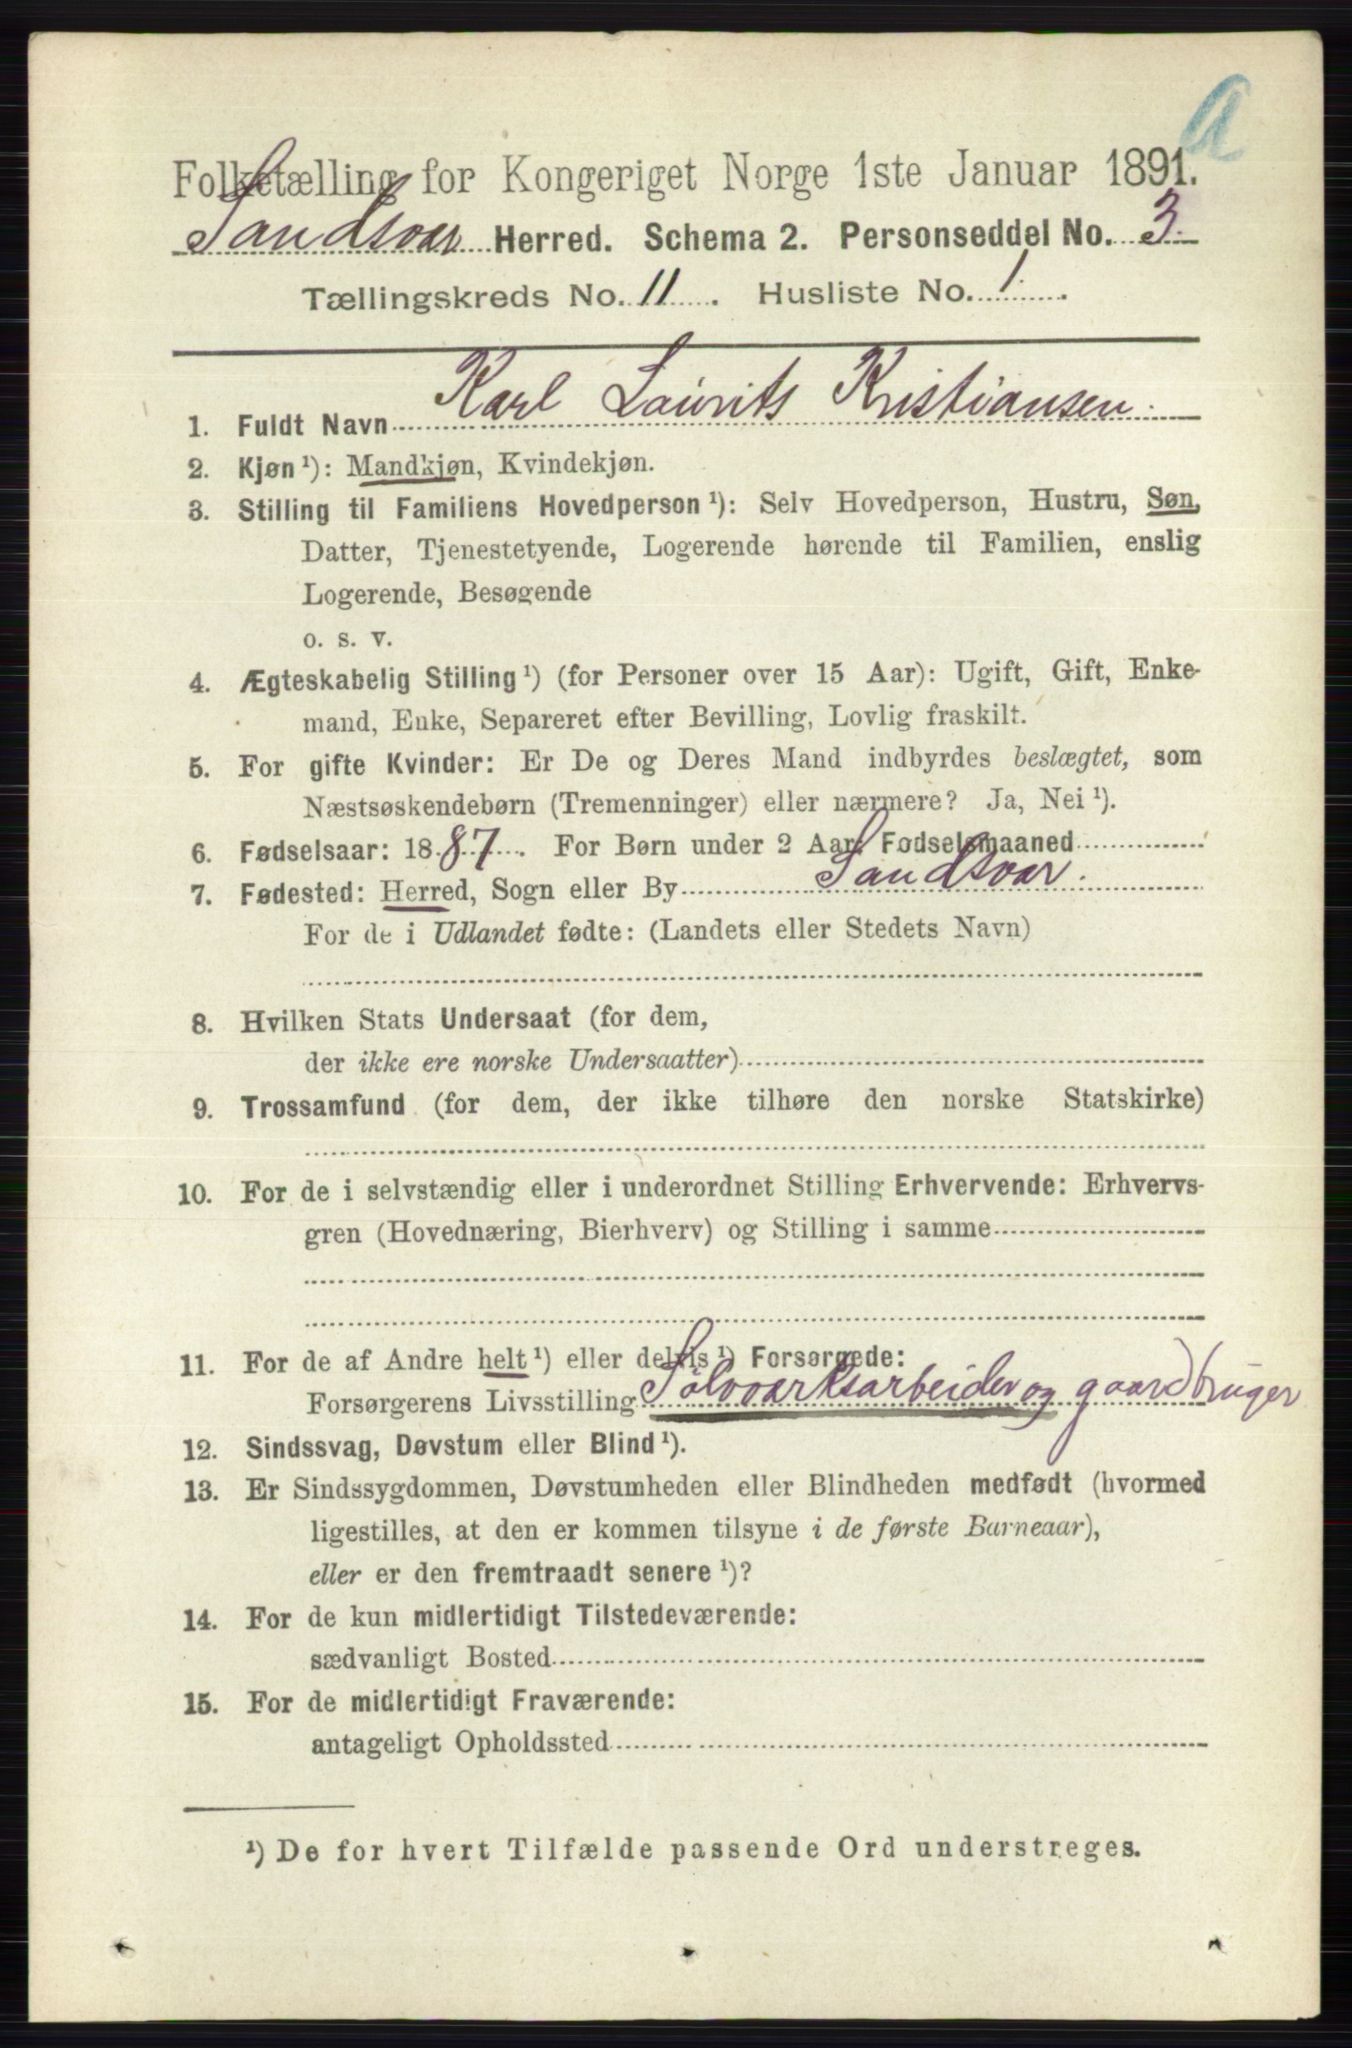 a
Folketælling for Kongeriget Norge 1ste Januar 1891.
Sandsvær Herred. Schema 2. Personseddel No. 3.
Tællingskreds No. 11. Husliste No. 1.
1. Fuldt Navn Karl Laurits Kristiansen.
2. Kjøn ¹): Mandkjøn, Kvindekjøn.
3. Stilling til Familiens Hovedperson ¹): Selv Hovedperson, Hustru, Søn,
Datter, Tjenestetyende, Logerende hørende til Familien, enslig
Logerende, Besøgende
o. s. v.
4. Ægteskabelig Stilling ¹) (for Personer over 15 Aar): Ugift, Gift, Enke-
mand, Enke, Separeret efter Bevilling, Lovlig fraskilt.
5. For gifte Kvinder: Er De og Deres Mand indbyrdes beslægtet, som
Næstsøskendebørn (Tremenninger) eller nærmere? Ja, Nei ¹).
6. Fødselsaar: 1887. For Børn under 2 Aar, Fødselsmaaned
7. Fødested: Herred, Sogn eller By Sandsvær.
For de i Udlandet fødte: (Landets eller Stedets Navn)
8. Hvilken Stats Undersaat (for dem,
der ikke ere norske Undersaatter)
9. Trossamfund (for dem, der ikke tilhøre den norske Statskirke)
10. For de i selvstændig eller i underordnet Stilling Erhvervende: Erhvervs-
gren (Hovednæring, Bierhverv) og Stilling i samme
11. For de af Andre helt ¹) eller delvis ¹) Forsørgede:
Forsørgerens Livsstilling Sølvværksarbeider og gaardbruger
12. Sindssvag, Døvstum eller Blind ¹).
13. Er Sindssygdommen, Døvstumheden eller Blindheden medfødt (hvormed
ligestilles, at den er kommen tilsyne i de første Barneaar),
eller er den fremtraadt senere ¹)?
14. For de kun midlertidigt Tilstedeværende:
sædvanligt Bosted
15. For de midlertidigt Fraværende:
antageligt Opholdssted
¹) De for hvert Tilfælde passende Ord understreges.